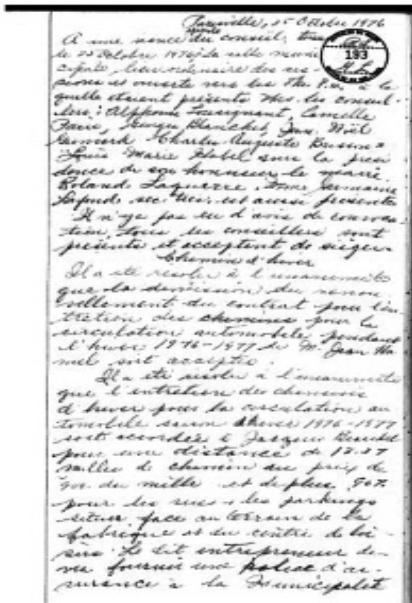 Parisville, 25 Octobre 1976
A une séance du conseil, tenue
le 25 Octobre 1976, la salle muni-
cipale, lieu ordinaire des ses-
sions et ouverte vers les P.M. à la
quelle étaient présents Mrs. les conseil-
lers: Alphonse Tousignant, Camille
Paris, Blanchet, Jean Noël
Charles Auguste
Louis Marie Habel sous la prési
dence de son honneur le maire
Roland Laquerre, Mme Germaine
Lafond sec. trés. est aussi présente
Il n'y a pas eu d'avis de convoca-
tion, tous les conseillers sont
présents et acceptent de siéger
Chemin d'hiver
Il a été résolu à l'unanimité
que la démission du renou
vellement du contrat pour l'en-
tretien des chemins pour la
circulation automobile pendant
l'hiver 1976-1977 de M. Jean Ha
mel soit acceptée.
Il a été résolu à l'unanimité
que l'entretien des chemins
d'hiver pour la circulation au
tomobile saison hiver 1976-1977
soit accordée à Jacques
pour une distance de 13.37
milles de chemin au prix de
du mille et de plus
pour les rues et les parkings
situer face au terrain de la
fabrique et du centre de loi-
sirs. Le dit entrepreneur de-
vra fournir une police d'as-
surance à la Municipalité
193